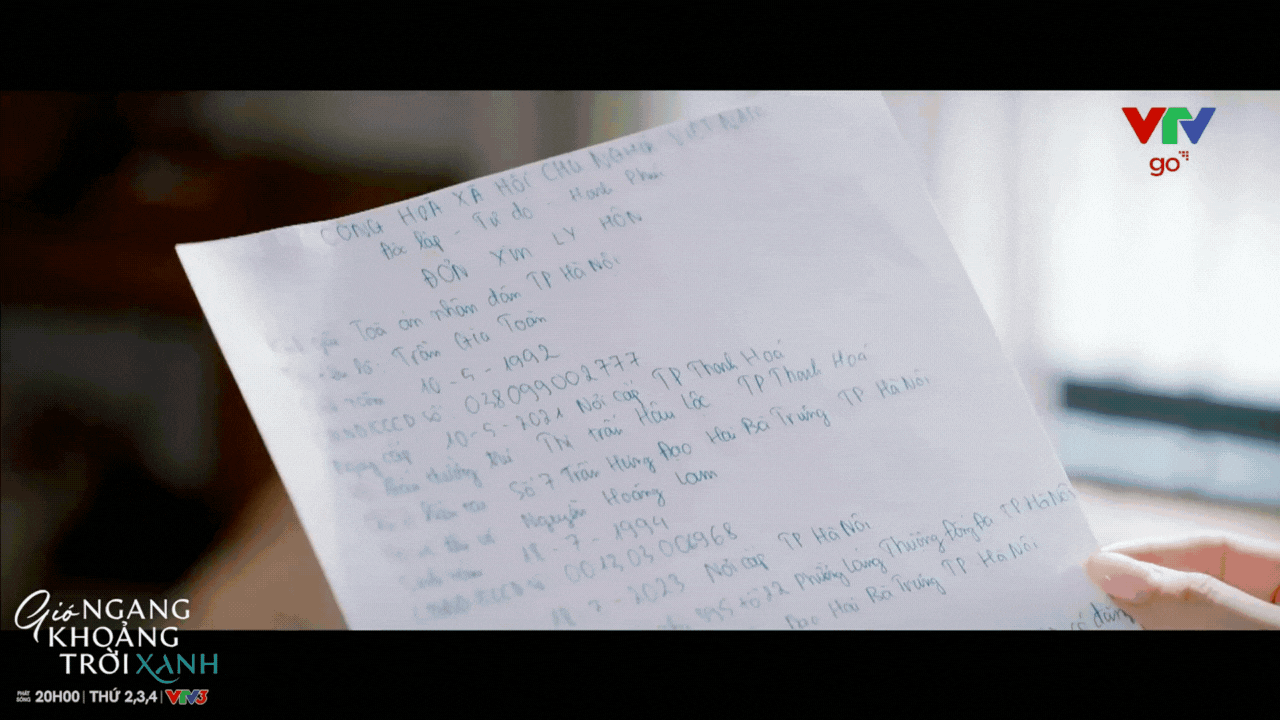 VTV
go
CỘNG HOÀ XÃ HỘI CHỦ NGHĨA VIỆT NAM
Độc lập - Tự do - Hạnh Phúc
ĐƠN XIN LY HÔN
Toà án nhân dân TP Hà Nội
Trần Gia Toàn
10-5-1992
CCCD số 038099002777
Ngày cấp 10-5-2021 Nơi cấp TP Thanh Hoá
Thị trấn Hậu Lộc TP Thanh Hoá
Số 7 Trần Hưng Đạo Hai Bà Trưng TP Hà Nội
Nguyễn Hoàng Lam
18-7-1994
CCCD số 001203006968
18-7-2023 Nơi cấp TP Hà Nội
tổ 22 Phường Láng Thượng Đống Đa TP Hà Nội
Đạo Hai Bà Trưng TP Hà Nội
Gió NGANG
KHOẢNG
TRỜI XANH
PHÁT SÓNG 20H00 | THỨ 2,3,4 | VTV3